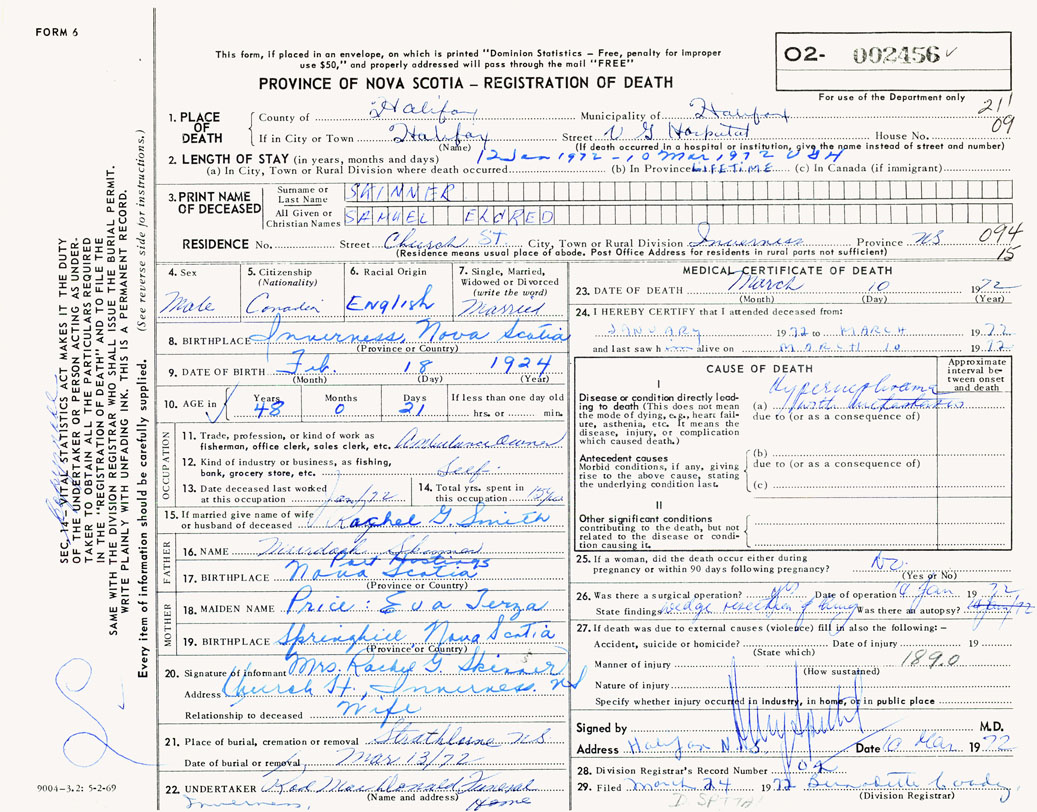 FORM 6
This form, if placed in an envelope, on which is printed "Dominion Statistics – Free, penalty for improper
use $50," and properly addressed will pass through the mail "FREE"
O2- 002456
PROVINCE OF NOVA SCOTIA – REGISTRATION OF DEATH
For use of the Department only
211
09
1. PLACE OF DEATH
County of Halifax Municipality of Halifax
If in City or Town Halifax Street V G Hospital House No.
(Name) (If death occurred in a hospital or institution, give the name instead of street and number)
2. LENGTH OF STAY (in years, months and days) 12 Jan 1972 – 10 Mar, 1972 V G H
(a) In City, Town or Rural Division where death occurred (b) In Province LIFETIME (c) In Canada (if immigrant)
3. PRINT NAME OF DECEASED
Surname or Last Name SKINNER
All Given or Christian Names SAMUEL ELDRED
RESIDENCE No. Street Church St. City, Town or Rural Division Inverness Province NS
(Residence means usual place of abode. Post Office Address for residents in rural parts not sufficient)
094
15
4. Sex
Male
5. Citizenship
(Nationality)
Canadian
6. Racial Origin
English
7. Single, Married,
Widowed or Divorced
(write the word)
Married
8. BIRTHPLACE Inverness, Nova Scotia
(Province or Country)
9. DATE OF BIRTH Feb. 18 1924
(Month) (Day) (Year)
10. AGE in Years Months Days If less than one day old
48 0 21 hrs. or min.
OCCUPATION
11. Trade, profession, or kind of work as
fisherman, office clerk, sales clerk, etc. Ambulance Owner
12. Kind of industry or business, as fishing,
bank, grocery store, etc. Self.
13. Date deceased last worked
at this occupation Jan/72
14. Total yrs. spent in
this occupation
15. If married give name of wife
or husband of deceased Rachel G. Smith
FATHER
16. NAME Murdoch Skinner
Port Hastings
17. BIRTHPLACE Nova Scotia
(Province or Country)
MOTHER
18. MAIDEN NAME Price: Eva Terza
19. BIRTHPLACE Springhill, Nova Scotia
(Province or Country)
20. Signature of informant Mrs. Rachel G. Skinner
Address Church St., Inverness. NS
Relationship to deceased Wife
21. Place of burial, cremation or removal Strathlorne NS
Date of burial or removal Mar 13/72
22. UNDERTAKER Rod MacDonald Funeral
(Name and address) Home
Inverness,
MEDICAL CERTIFICATE OF DEATH
23. DATE OF DEATH March 10 1972
(Month) (Day) (Year)
24. I HEREBY CERTIFY that I attended deceased from:
JANUARY 1972 to MARCH 1972
and last saw him alive on MARCH 10 1972
CAUSE OF DEATH
Approximate interval between onset and death
I
Disease or condition directly leading to death (This does not mean the mode of dying, e.g., heart failure, asthenia, etc. It means the disease, injury, or complication which caused death.)
(a) Hypernephroma
with metastases
due to (or as a consequence of)
Antecedent causes
Morbid conditions, if any, giving rise to the above cause, stating the underlying condition last.
(b)
due to (or as a consequence of)
(c)
II
Other significant conditions
contributing to the death, but not related to the disease or condition causing it.
25. If a woman, did the death occur either during
pregnancy or within 90 days following pregnancy? No
(Yes or No)
26. Was there a surgical operation? yes Date of operation 14 Jan 1972
State findings wedge resection of lung Was there an autopsy?
27. If death was due to external causes (violence) fill in also the following: –
Accident, suicide or homicide? Date of injury 19
(State which)
Manner of injury 189.0
(How sustained)
Nature of injury
Specify whether injury occurred in Industry, in home, or in public place
Signed by M.D.
Address Halifax N.S. Date 10 Mar 1972
28. Division Registrar's Record Number 709
29. Filed March 24 1972 Bernadette
(Division Registrar)
SEC. 14 – VITAL STATISTICS ACT MAKES IT THE DUTY
OF THE UNDERTAKER OR PERSON ACTING AS UNDER-
TAKER TO OBTAIN ALL THE PARTICULARS REQUIRED
IN THE "REGISTRATION OF DEATH" AND TO FILE THE
SAME WITH THE DIVISION REGISTRAR WHO SHALL ISSUE THE BURIAL PERMIT.
WRITE PLAINLY WITH UNFADING INK. THIS IS A PERMANENT RECORD.
Every item of information should be carefully supplied. (See reverse side for instructions.)
9004-3.2: 5-2-69